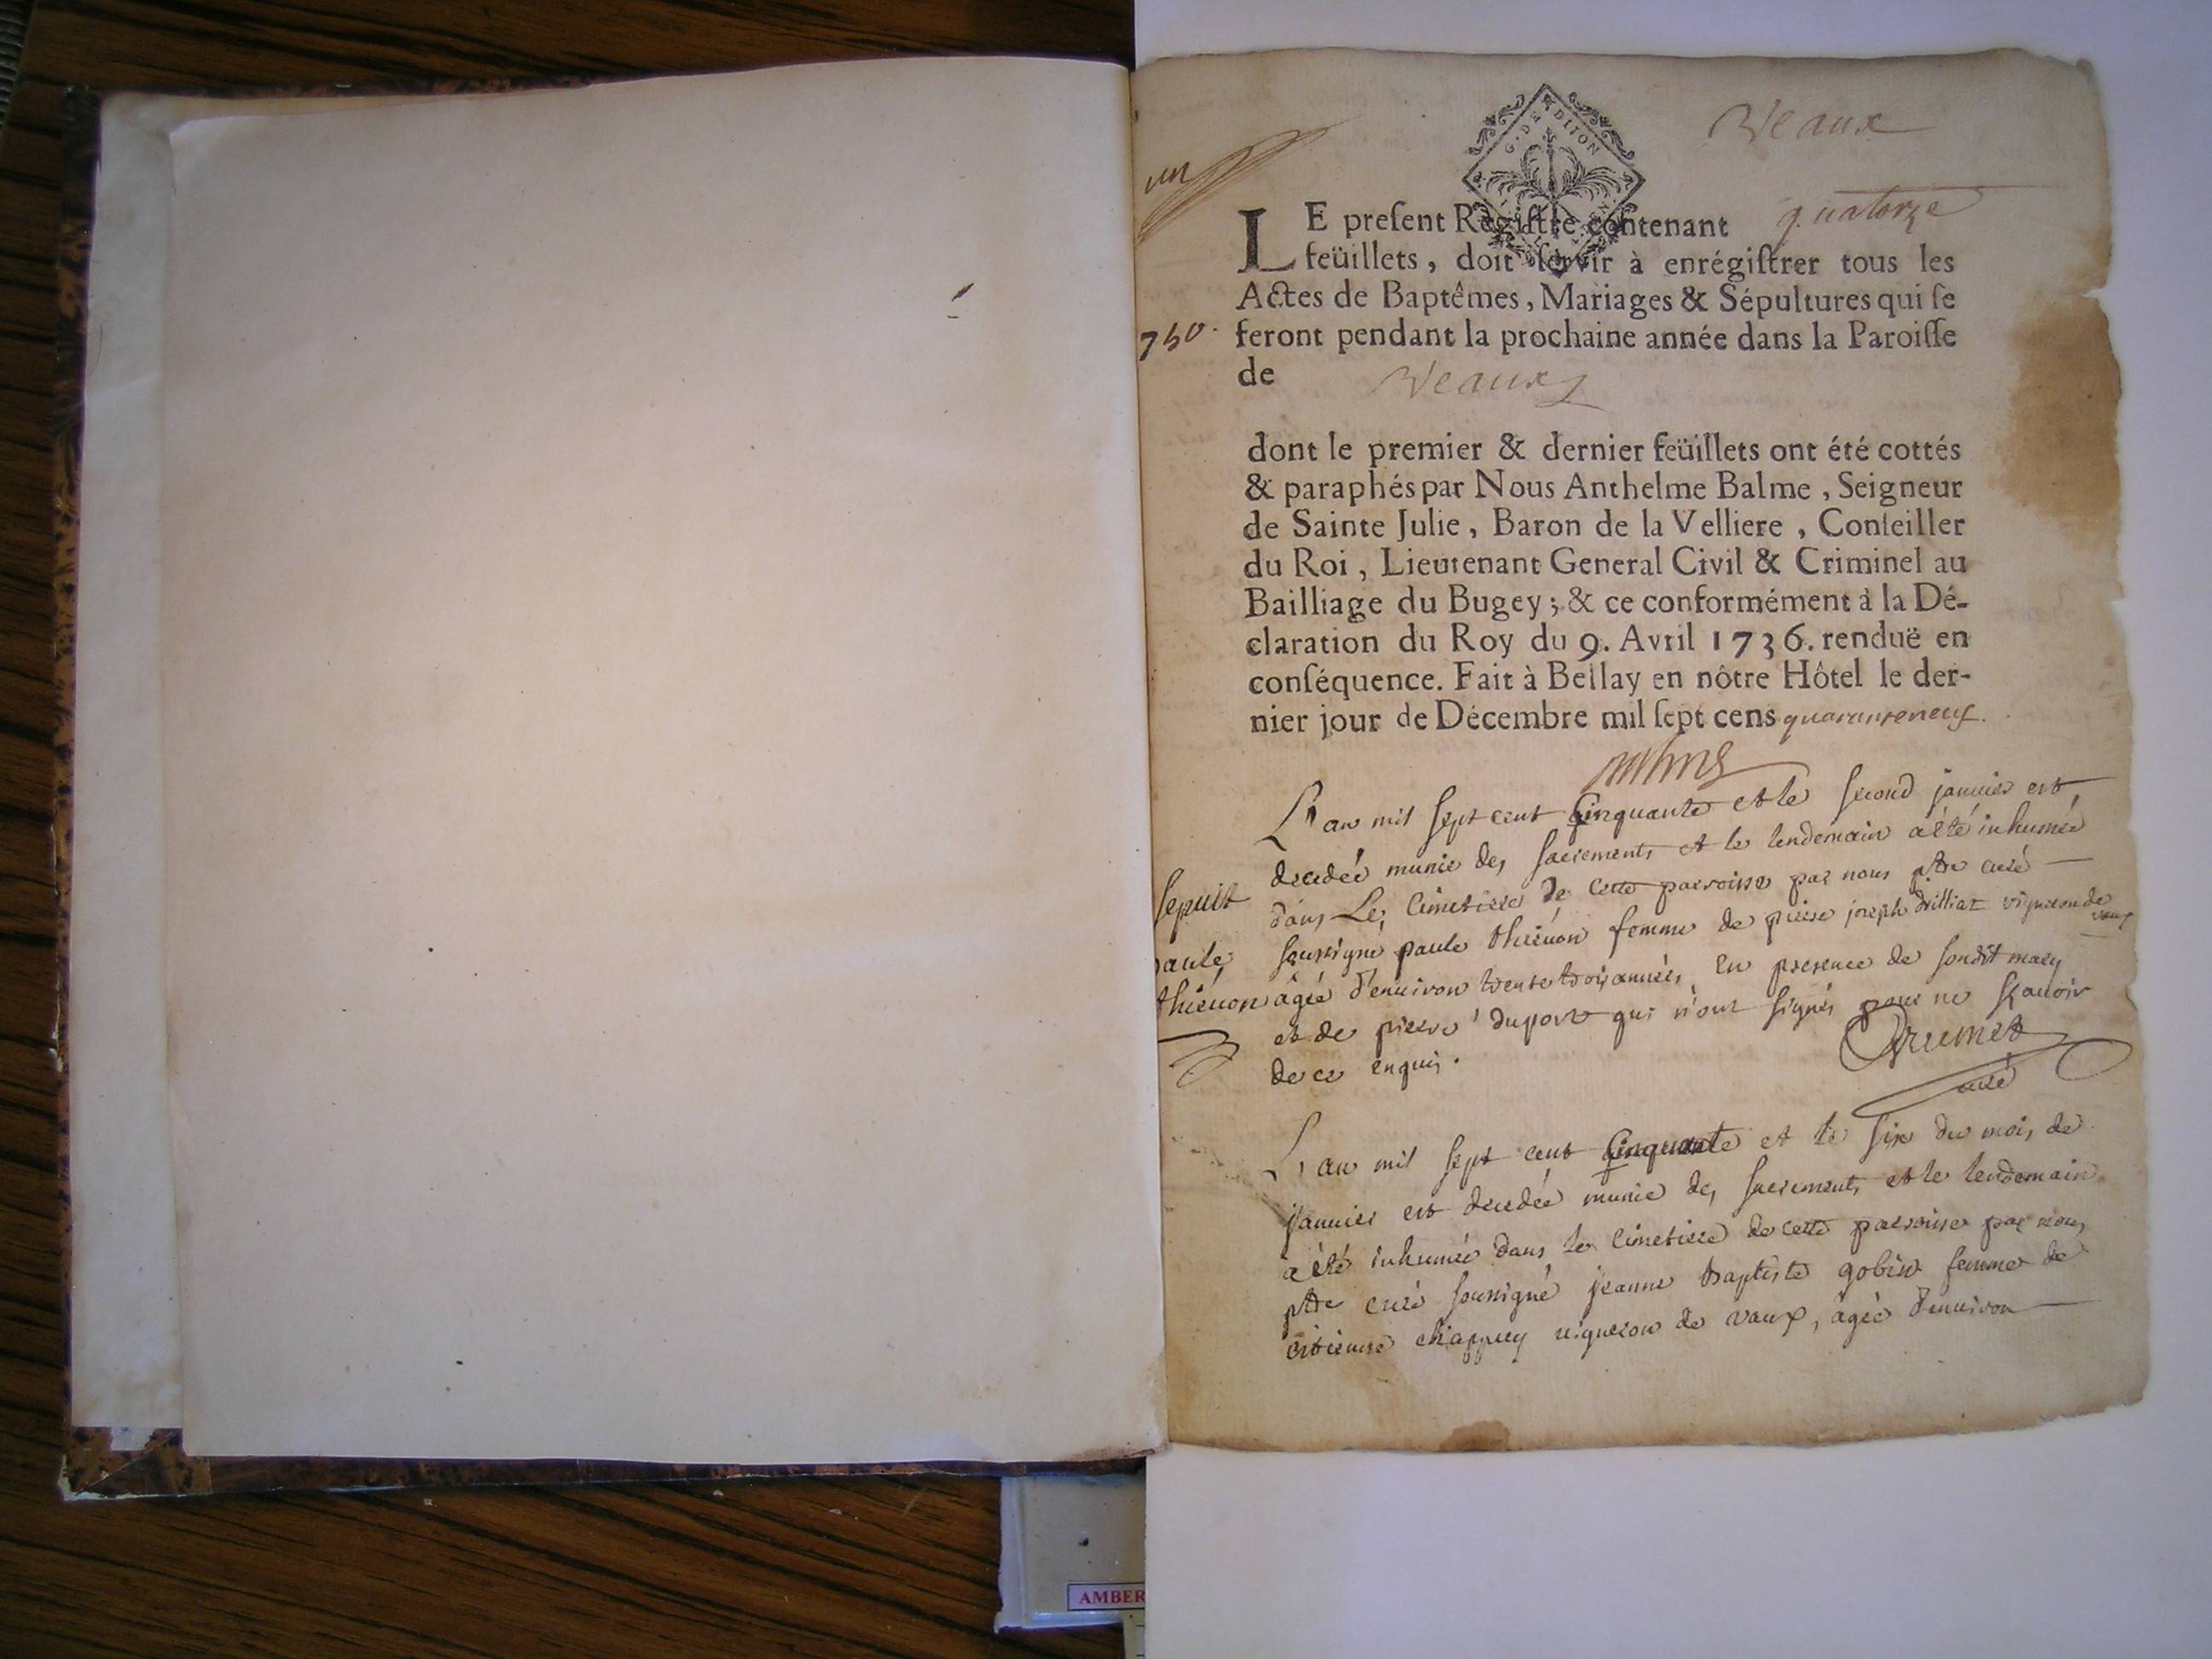 Veaux
G. DE DIJON
un
quatorze
LE preſent Regiſtre contenant
feüillets, doit ſervir à enrégiſtrer tous les
Actes de Baptêmes, Mariages & Sépultures qui ſe
750.
feront pendant la prochaine année dans la Paroiſſe
de Veaux
dont le premier & dernier feüillets ont été cottés
& paraphés par Nous Anthelme Balme, Seigneur
de Sainte Julie, Baron de la Velliere, Conſeiller
du Roi, Lieutenant General Civil & Criminel au
Bailliage du Bugey; & ce conformément à la Dé-
claration du Roy du 9. Avril 1736. renduë en
conſéquence. Fait à Bellay en nôtre Hôtel le der-
nier jour de Décembre mil ſept cens quaranteneuf.
L'an mil sept cent Cinquante et le second janvier est
decedée munie des sacrements et le lendemain a été inhumée
dans Le cimetiere de cette parroisse par nous ptre curé
soussigné paule thiénon femme de pierre joseph drilliat vigneron de vaux
âgée d'enuiron trente trois années, En presence de sondit mary
et de pierre duport qui n'ont signés pour ne sçauoir
de ce enquis.
sepult
paule
thiénon
Brumet
curé
L'an mil sept cent Cinquante et le six du mois de
januier est decedée munie des sacrements et le lendemain
a été inhumée dans le cimetiere de cette parroisse par nous
ptre curé soussigné jeanne baptiste gobin femme de
estienne chappuy uigneron de vaux, âgée d'enuiron
AMBER